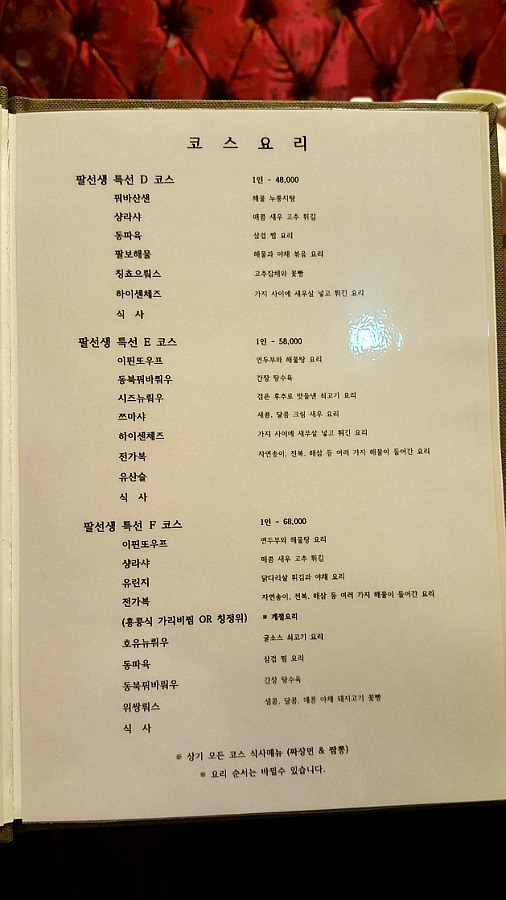 코 스 요 리
팔선생 특선 D 코스 1인 - 48,000
꿔바산샌 해물 누룽지탕
샹라샤 매콤 새우 고추 튀김
동파육 삼겹 찜 요리
팔보해물 해물과 야채 볶음 요리
칭쵸으뤄스 고추잡채와 꽃빵
하이센체즈 가지 사이에 새우살 넣고 튀긴 요리
식 사
팔선생 특선 E 코스 1인 - 58,000
이핀또우프 연두부와 해물탕 요리
동북꿔바뤄우 간장 탕수육
시즈뉴뤄우 검은 후추로 맛들낸 쇠고기 요리
쯔마샤 새콤, 달콤 크림 새우 요리
하이센체즈 가지 사이에 새우살 넣고 튀긴 요리
전가복 자연송이, 전복, 해삼 등 여러 가지 해물이 들어간 요리
유산슬
식 사
팔선생 특선 F 코스 1인 - 68,000
이핀또우프 연두부와 해물탕 요리
샹라샤 매콤 새우 고추 튀김
유린지 닭다리살 튀김과 야채 요리
전가복 자연송이, 전복, 해삼 등 여러 가지 해물이 들어간 요리
(홍콩식 가리비찜 OR 칭정위) ※ 계절요리
호유뉴뤄우 굴소스 쇠고기 요리
동파육 삼겹 찜 요리
동북꿔바뤄우 간장 탕수육
위쌍뤄스 샘콤, 달콤, 매콤 야채 돼지고기 꽃빵
식 사
※ 상기 모든 코스 식사메뉴 (짜장면 & 짬뽕)
※ 요리 순서는 바뀔수 있습니다.